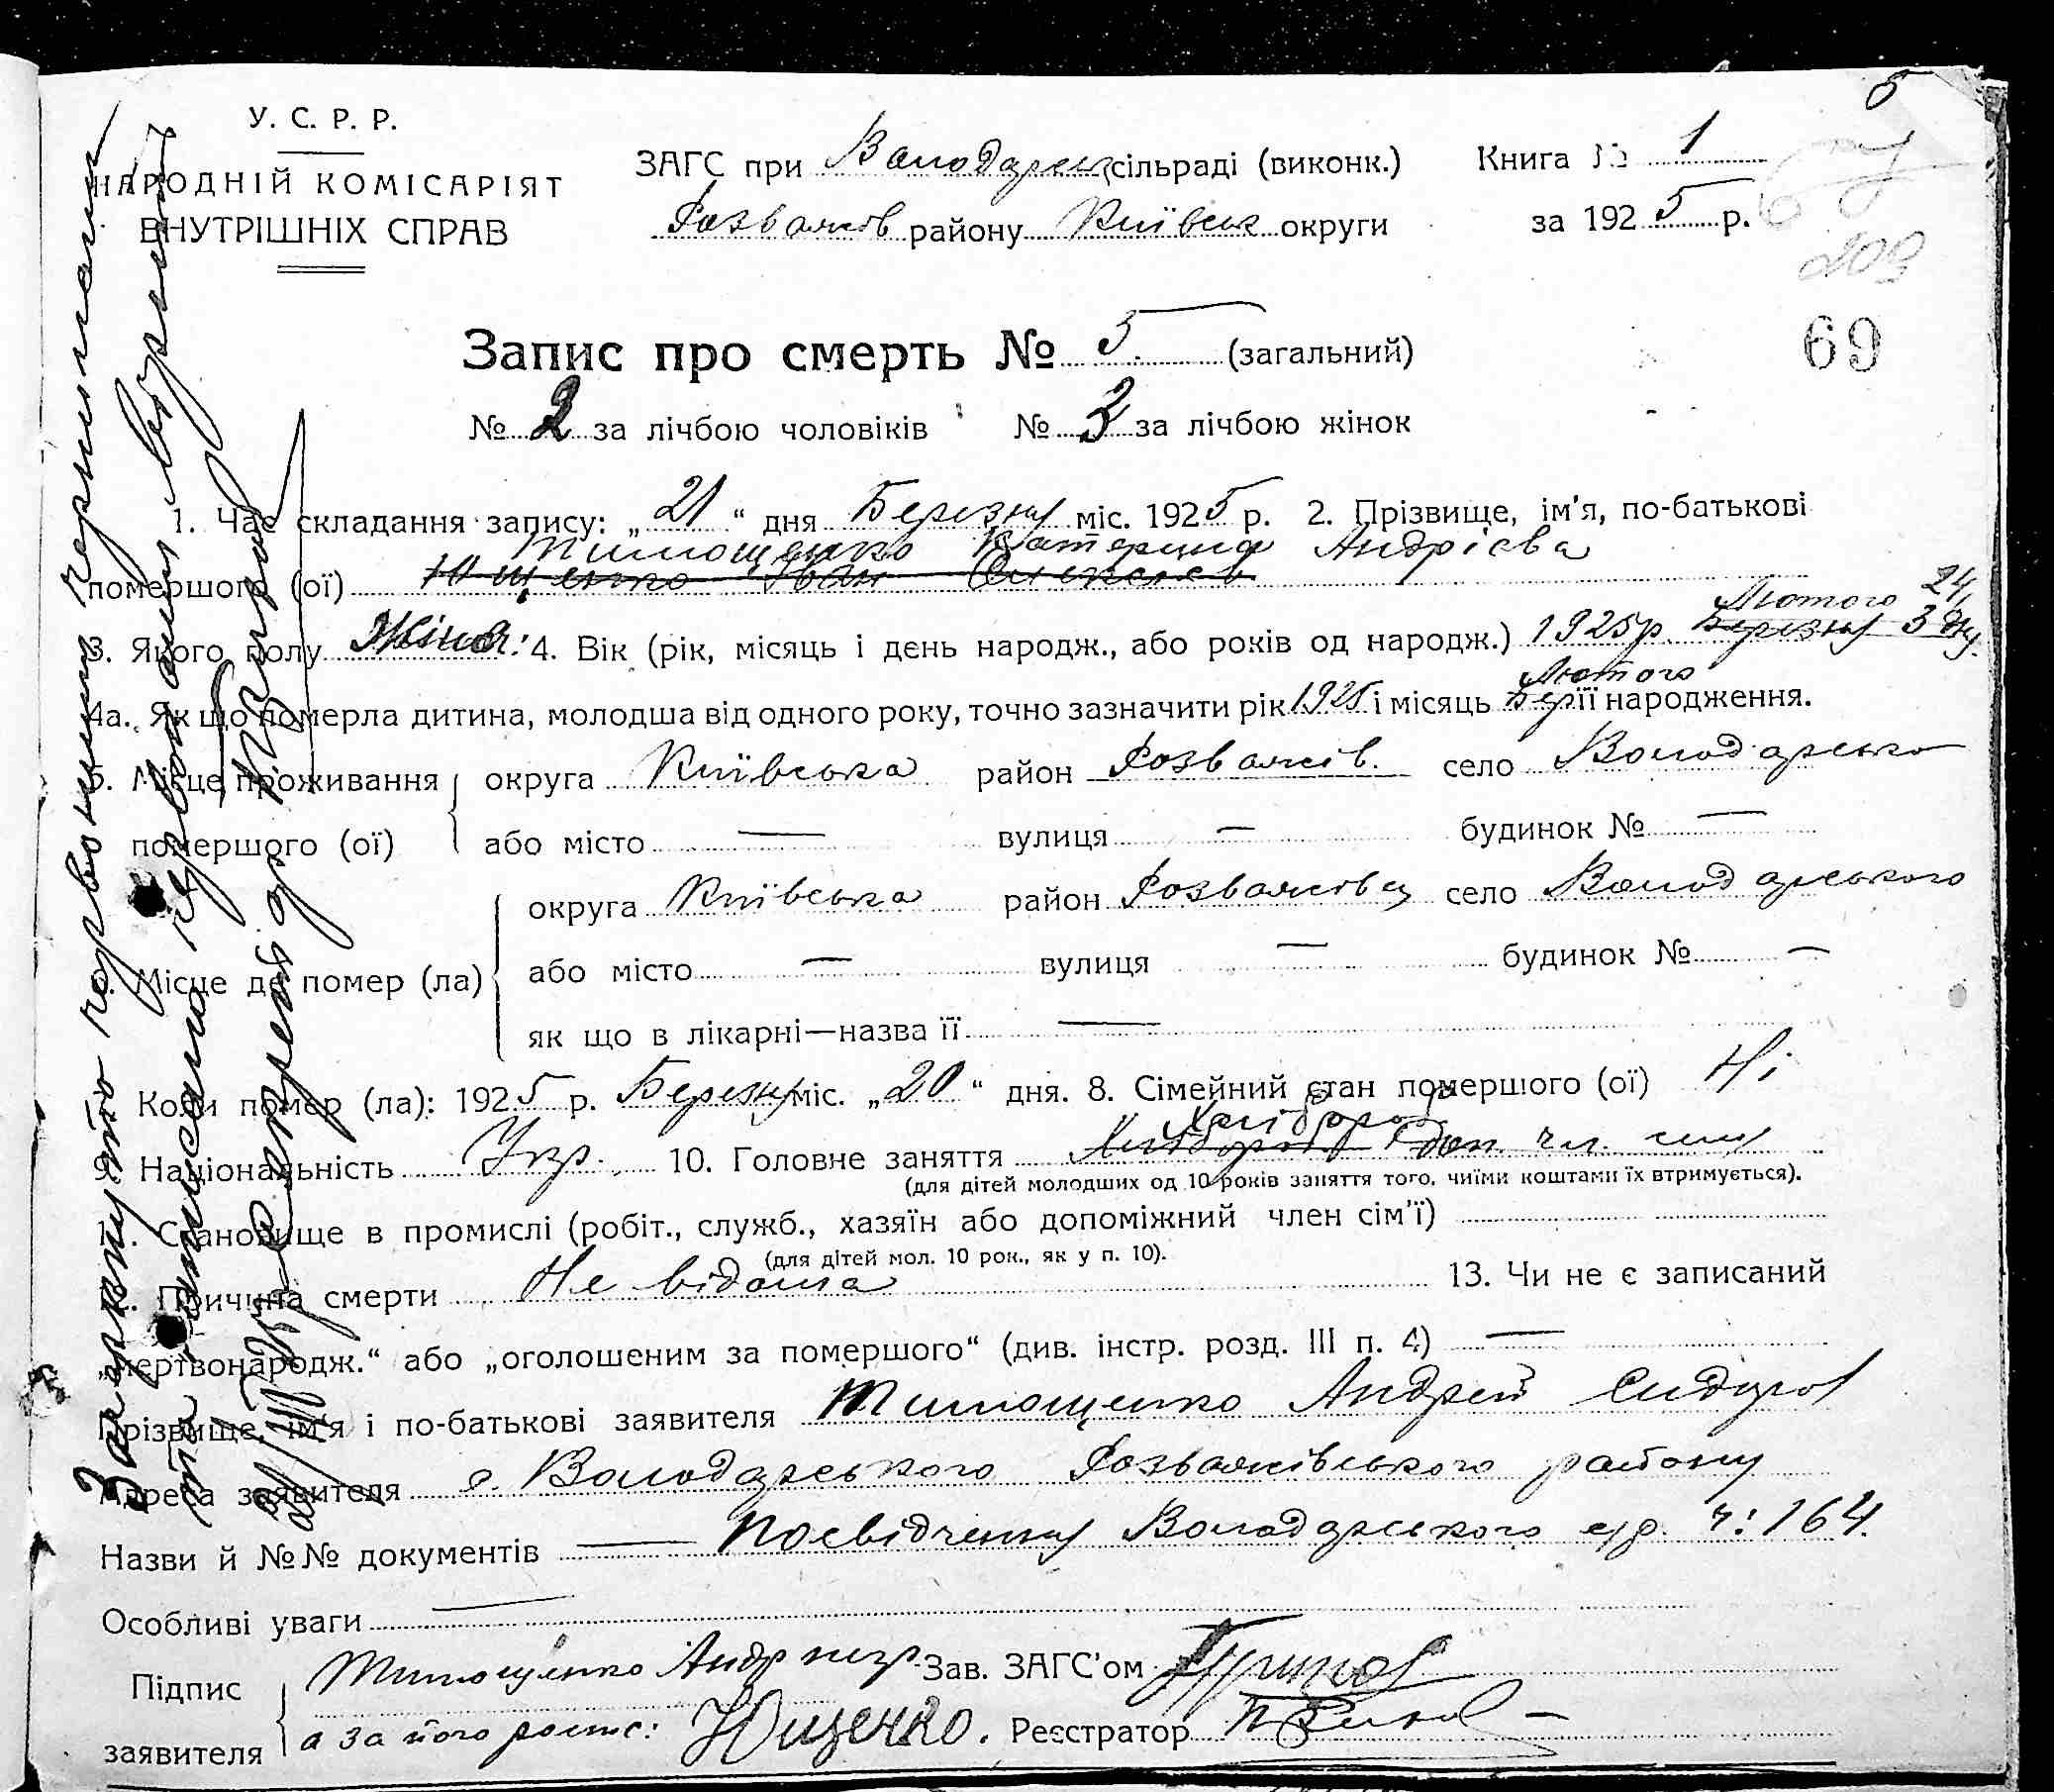 5
У. С. Р. Р.
НАРОДНІЙ КОМІСАРІЯТ
ВНУТРІШНІХ СПРАВ
ЗАГС при Володарськ сільраді (виконк.)
Розважів району Київськ округи
Книга № 1
за 1925 р.
209
69
Запис про смерть № 5 (загальний)
№ 2 за лічбою чоловіків № 3 за лічбою жінок
1. Час складання запису: „21“ дня Березня міс. 1925 р. 2. Прізвище, ім'я, по-батькові
Тимощенко Катерина Андрієва
помершого (ої) Ющенко Іван Олексієв
Лютого 24
3. Якого полу Жіноч. 4. Вік (рік, місяць і день народж., або років од народж.) 1925р. Березня 3 дн.
Лютого
4а. Як що померла дитина, молодша від одного року, точно зазначити рік 1925 і місяць Бер її народження.
5. Місце проживання округа Київська район Розважів. село Володарсько
помершого (ої) або місто — вулиця — будинок № —
округа Київська район Розважівськ село Володарського
Місце де помер (ла) або місто — вулиця — будинок № —
як що в лікарні—назва її —
Коли помер (ла): 1925 р. Березня міс. „20“ дня. 8. Сімейний стан помершого (ої) Ні
Хлібороб
9. Національність Укр. 10. Головне заняття Хлібороб доп. чл. сім'ї
(для дітей молодших од 10 років заняття того, чиїми коштами їх втримується).
Становище в промислі (робіт., служб., хазяїн або допоміжний член сім'ї)
(для дітей мол. 10 рок., як у п. 10).
Причина смерти Не відома 13. Чи не є записаний
„мертвонародж.“ або „оголошеним за помершого“ (див. інстр. розд. III п. 4) —
Прізвище, ім'я і по-батькові заявителя Тимощенко Андрей Сидоров
Адреса заявителя с. Володарського Розважівського району
Назви й №№ документів — Посвідчення Володарського с/р. ч: 164.
Особливі уваги —
Підпис Тимощенко Андр непр. Зав. ЗАГС'ом
заявителя а за його роспис: Ющенко. Реєстратор
Закритому червоними чернилами
та написано червоними вірити